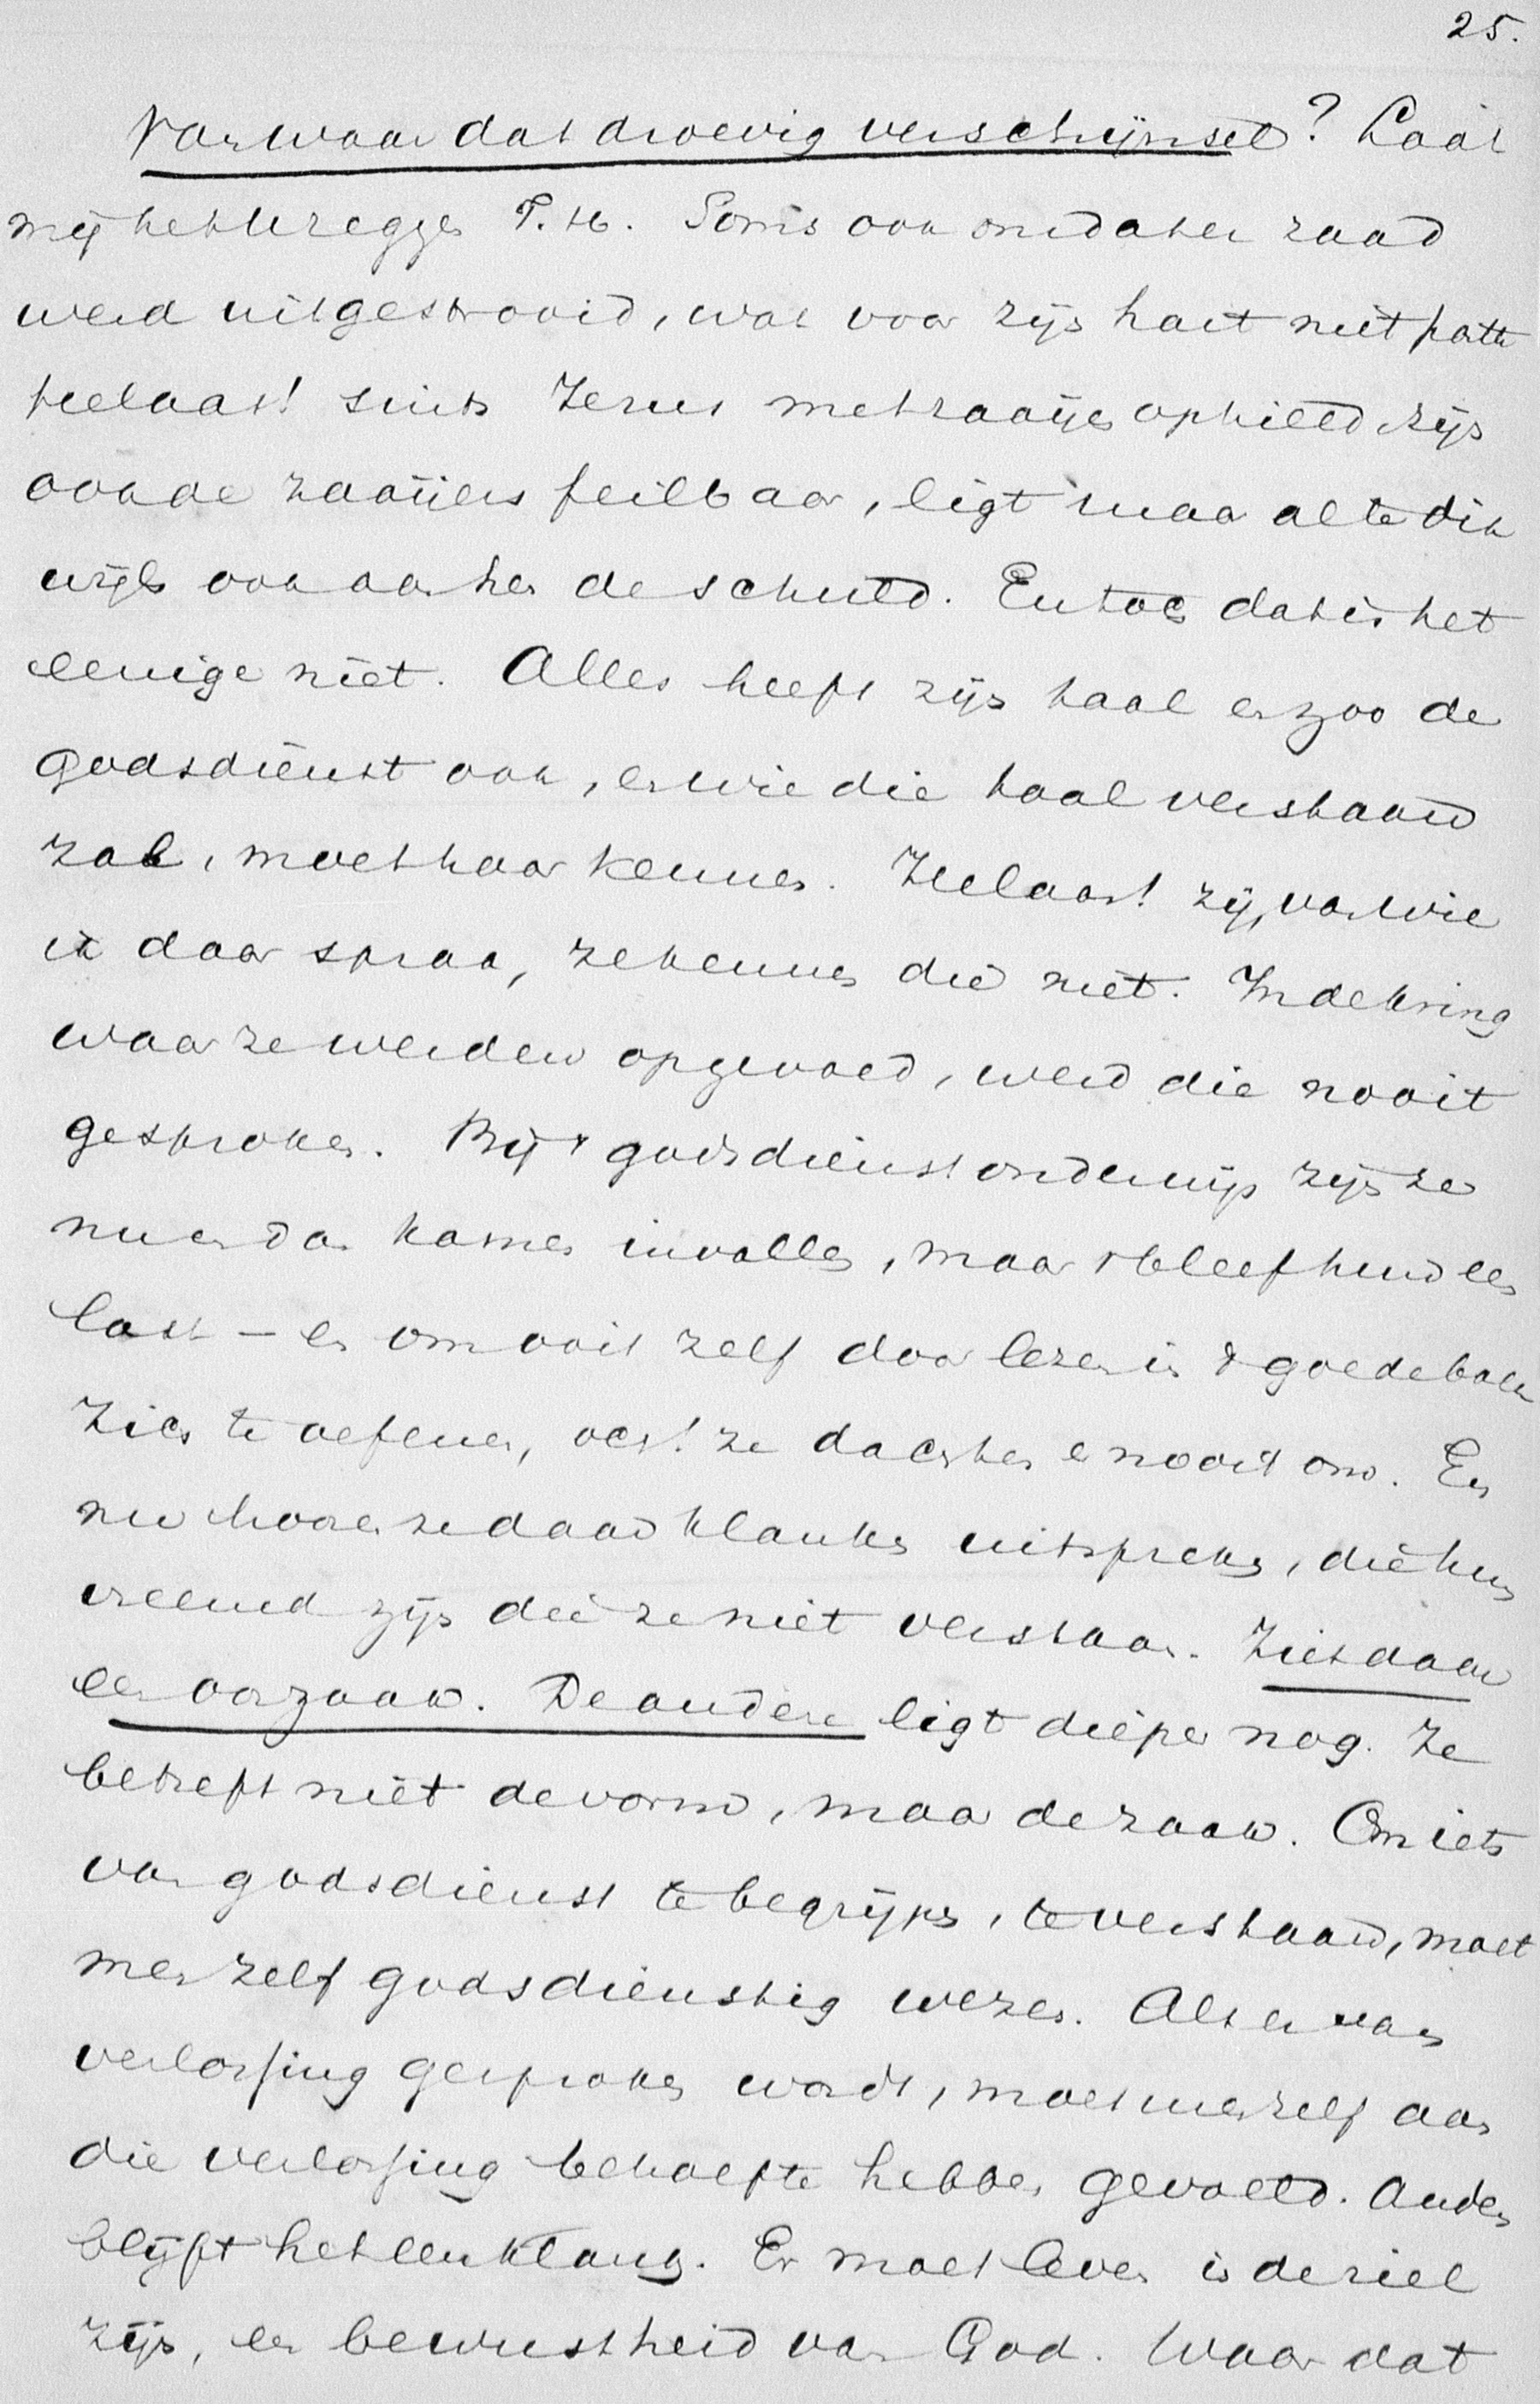 25.
Van waar dat droevig verschijnsel? Laat
mij het U zeggen T. H. Soms ook omdat er zaad
werd uitgestrooid, wat voor zijn hart niet paste
helaas! sinds Jezus met zaaijen ophield zijn
ook de zaaijers feilbaar, ligt maar al te dik
wijls ook aan hen de schuld. En toch dat is het
eenige niet. Alles heeft zijn taal en zoo de
godsdienst ook, en wie die taal verstaan
zal, moet haar kennen. Helaas! zij, van wie
ik daar sprak, ze kennen die niet. In de kring
waar ze werden opgevoed, werd die nooit
gesproken. Bij 't godsdienstonderwijs zijn ze
nu en dan komen invallen, maar 't bleef hun een
last – en om ooit zelf door lezen in 't goede boek
zich te oefenen, och! ze dachten er nooit om. En
nu hooren ze daar klanken uitspreken, die hun
vreemd zijn die ze niet verstaan. Ziet daar
een oorzaak. De andere ligt dieper nog. Ze
betreft niet de vorm, maar de zaak. Om iets
van godsdienst te begrijpen, te verstaan, moet
men zelf godsdienstig wezen. Als er van
verlossing gesproken wordt, moet men zelf aan
die verlossing behoefte hebben gevoeld. Anders
blijft het een klank. Er moet leven in de ziel
zijn, een bewustheid van God. Waar dat